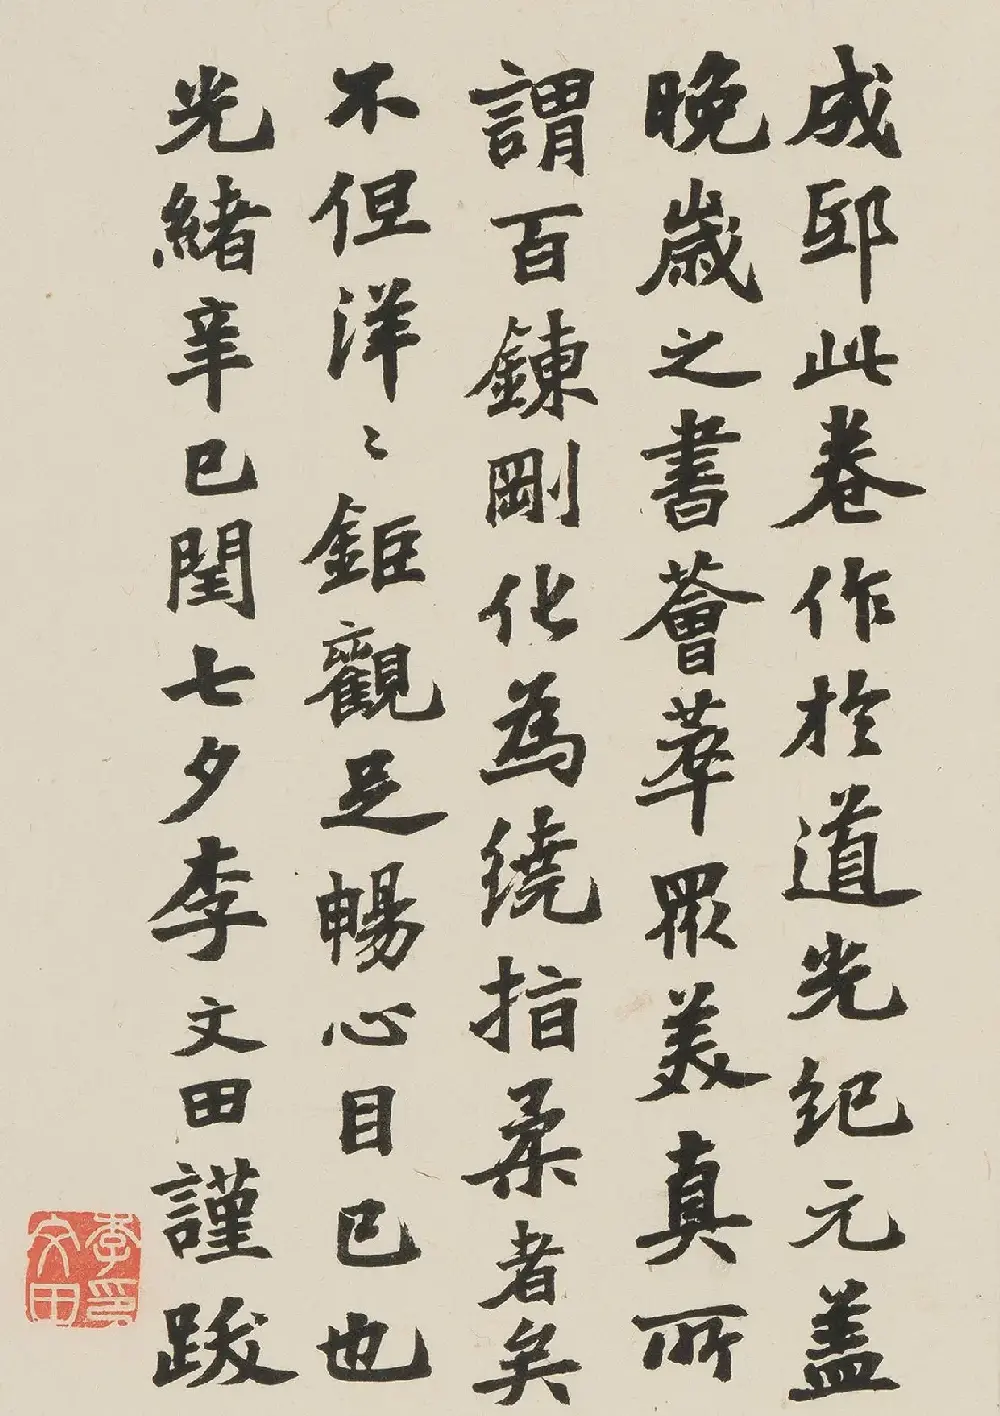 成邸此卷作於道光紀元蓋
晚歲之書薈萃眾美真所
謂百鍊剛化為繞指柔者矣
不但洋〻鉅觀足暢心目已也
光緒辛巳閏七夕李文田謹跋
李文田印